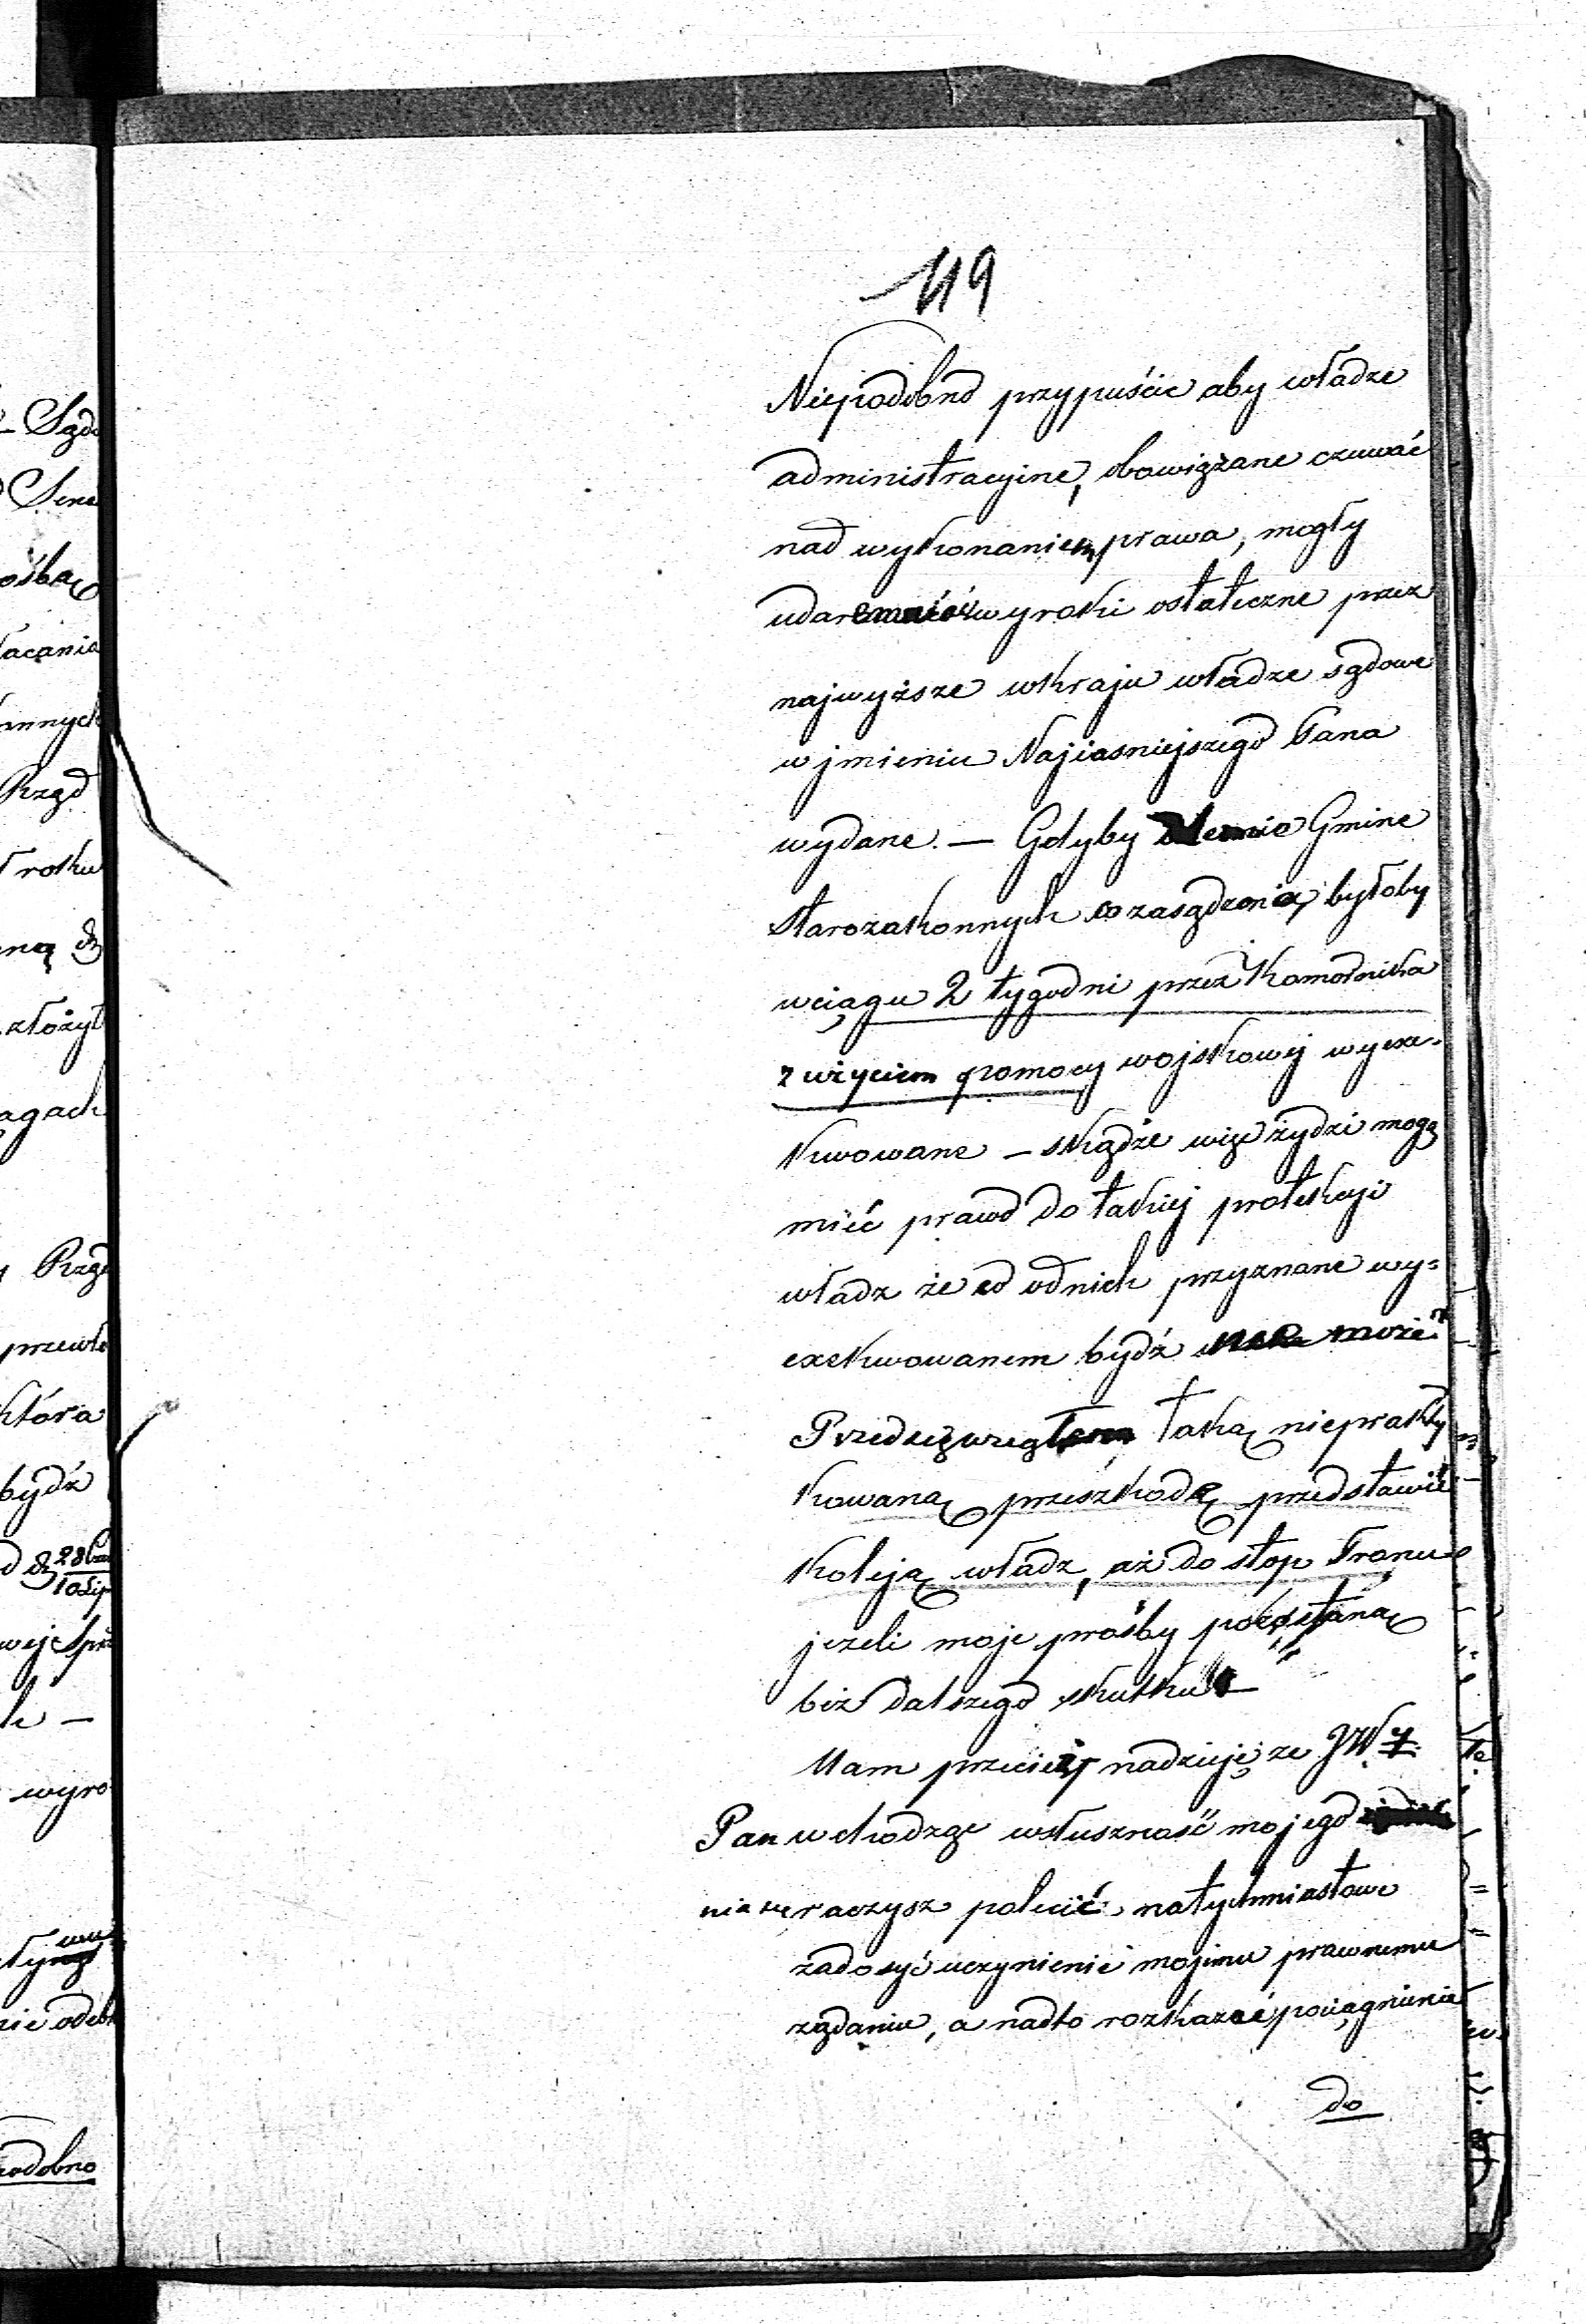 119
Niepodobno przypuścić aby władze
administracyjne, obowiązane czuwać
nad wykonaniem prawa, mogły
udaremnić wyroki ostateczne przez
najwyższe wkraju władze sądowe
w jmieniu Najiasniejszego Pana
wydane. — Gdyby Gmine
starozakonnych zasądzenia, byłoby
wciągu 2 tygodni przez Komornika
z użyciem pomocy wojskowej wyexe-
kwowane – skądże więc żydzi mogą
mieć prawo do takiej protekcyi
władz że od odnich przyznane wy=
exekwowanem bydź nie może?
Przedsięwziąłem taką nieprakty
kowaną przeszkodę przedstawić
koleją władz, aż do stop Tronu
jezeli moje prośby pozostaną
bez dalszego skutku –
Mam przecież nadzieję ze JW
Pan wchodząc wsłuszność mojego
nia raczysz polecić natychmiastowe
zadosyć uczynienie mojemu prawnemu
ządaniu, a nadto rozkazać pociągnienie
do
Sądo
Sena
ośbą
łacania
onnych
Rząd
roku
ną
złożył
agach
Rzą
przewle
która
bydź
28
10 Lip
wej Spra
wyro
odobno